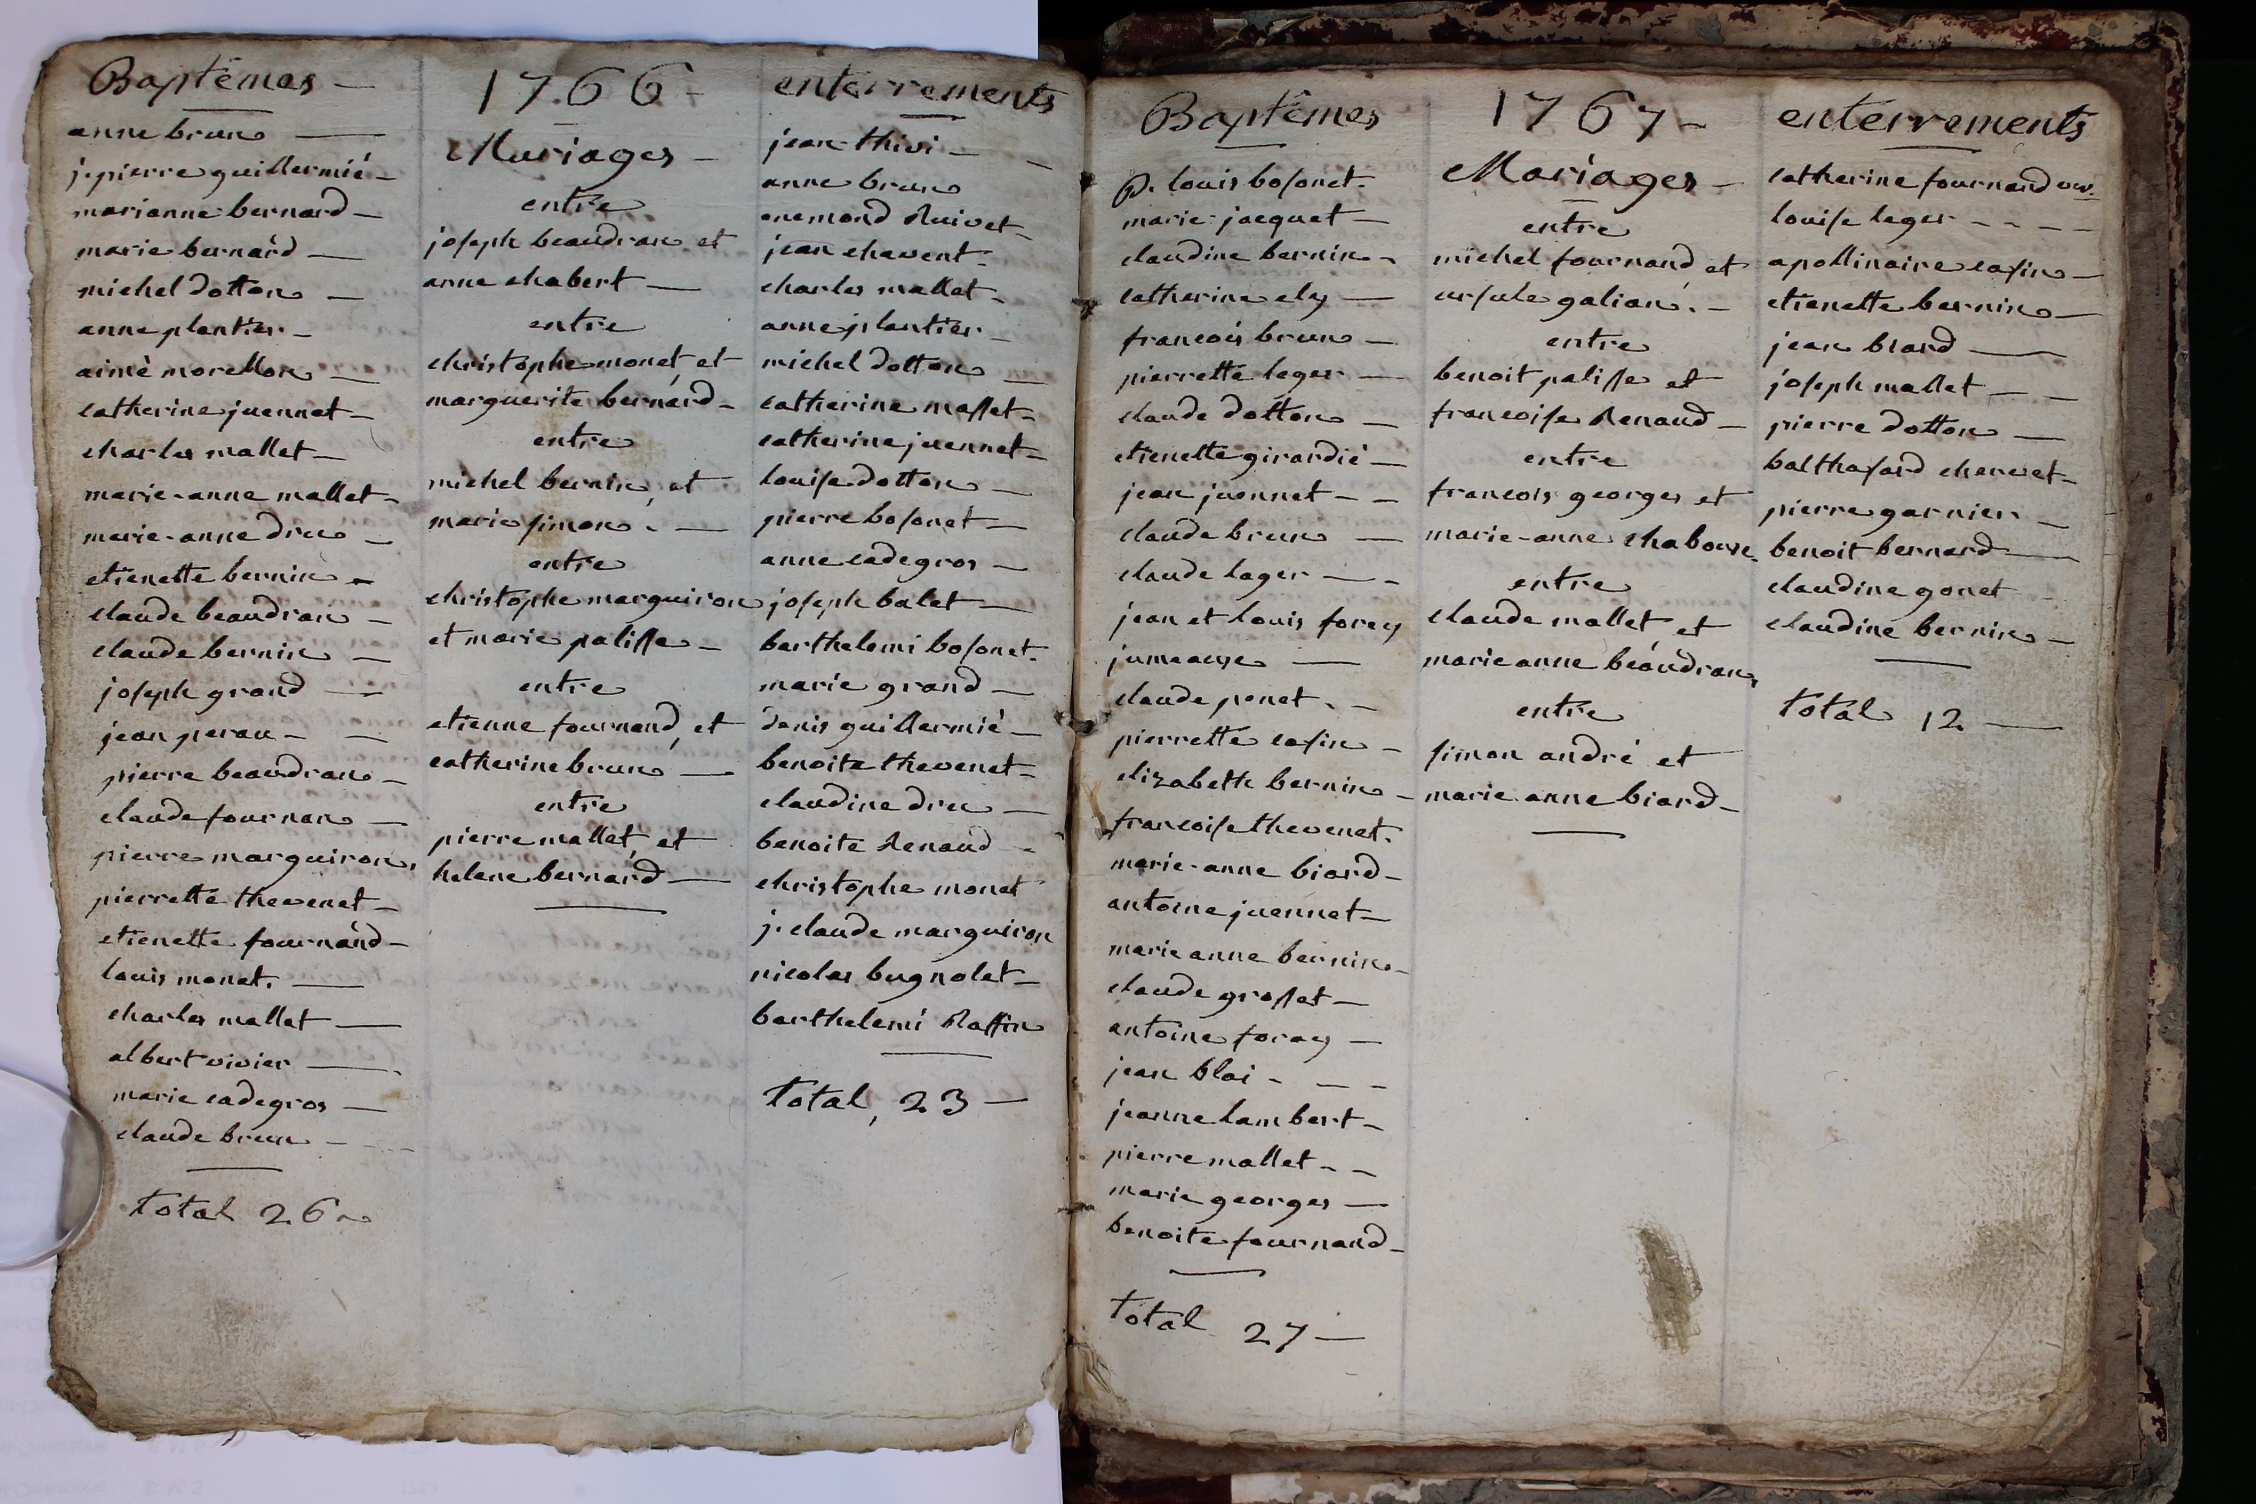 Baptêmes —
anne brun —
j. pierre guillermié —
marianne bernard —
marie bernard —
michel dotton —
anne plantier —
aimé morellon —
catherine juennet —
charles mallet —
marie-anne mallet -
marie-anne dru —
etienette bernin —
claude beaudran —
claude bernin —
joseph grand —
jean perau - —
pierre beaudran —
claude fournan —
pierre marguiron,
pierrette thevenet —
etienette fournand —
louis monet. —
charles mallet —
albert vivier —
marie cadegros —
claude brun - - -
total 26
1766 -
Mariages —
entre
joseph beaudran et
anne chabert —
entre
christophe monet, et
marguerite bernard —
entre
michel bernin, et
marie simon. —
entre
christophe marguiron
et marie palisse —
entre
etienne fournand, et
catherine brun —
entre
pierre mallet, et
helene bernard —
enterrements
jean thivi — —
anne brun
enemond Ruivet -
jean chevent -
charles mallet -
anne plantier -
michel dotton —
catherine masset -
catherine juennet -
louise dotton —
pierre bosonet —
anne cadegros —
joseph balet —
barthelemi bosonet.
marie grand —
denis guillermié —
benoite thevenet -
claudine dru —
benoite Renaud -
christophe monet
j. claude marguiron
nicolas bugnolet —
barthelemi Raffin
total, 23 —
Baptêmes
p. louis bosonet.
marie jacquet —
claudine bernin -
catherine ely —
francois brun —
pierrette leger —
claude dotton —
etienette girardié —
jean juennet - -
claude brun —
claude leger — -
jean et louis forey
jumeaux —
claude ponet. -
pierrette casin -
elizabeth bernin -
francoise thevenet.
marie-anne biard -
antoine juennet —
marie anne bernin -
claude grosset —
antoine forey —
jean blai - - -
jeanne lambert -
pierre mallet - -
marie georges —
benoite fournand -
total 27 —
1767 -
Mariages —
entre
michel fournand, et
ursule galian. -
entre
benoit palisse et
francoise Renaud —
entre
francois georges et
marie-anne chaboux
entre
claude mallet, et
marie anne beaudran,
entre
simon andré et
marie anne biard -
enterrements
catherine fournand
louise leger - - - -
apollinaire casin —
etienette bernin —
jean biard —
joseph mallet — -
pierre dotton —
balthasard chenevet -
pierre garnier -
benoit bernard —
claudine gonet -
claudine bernin —
total 12 —